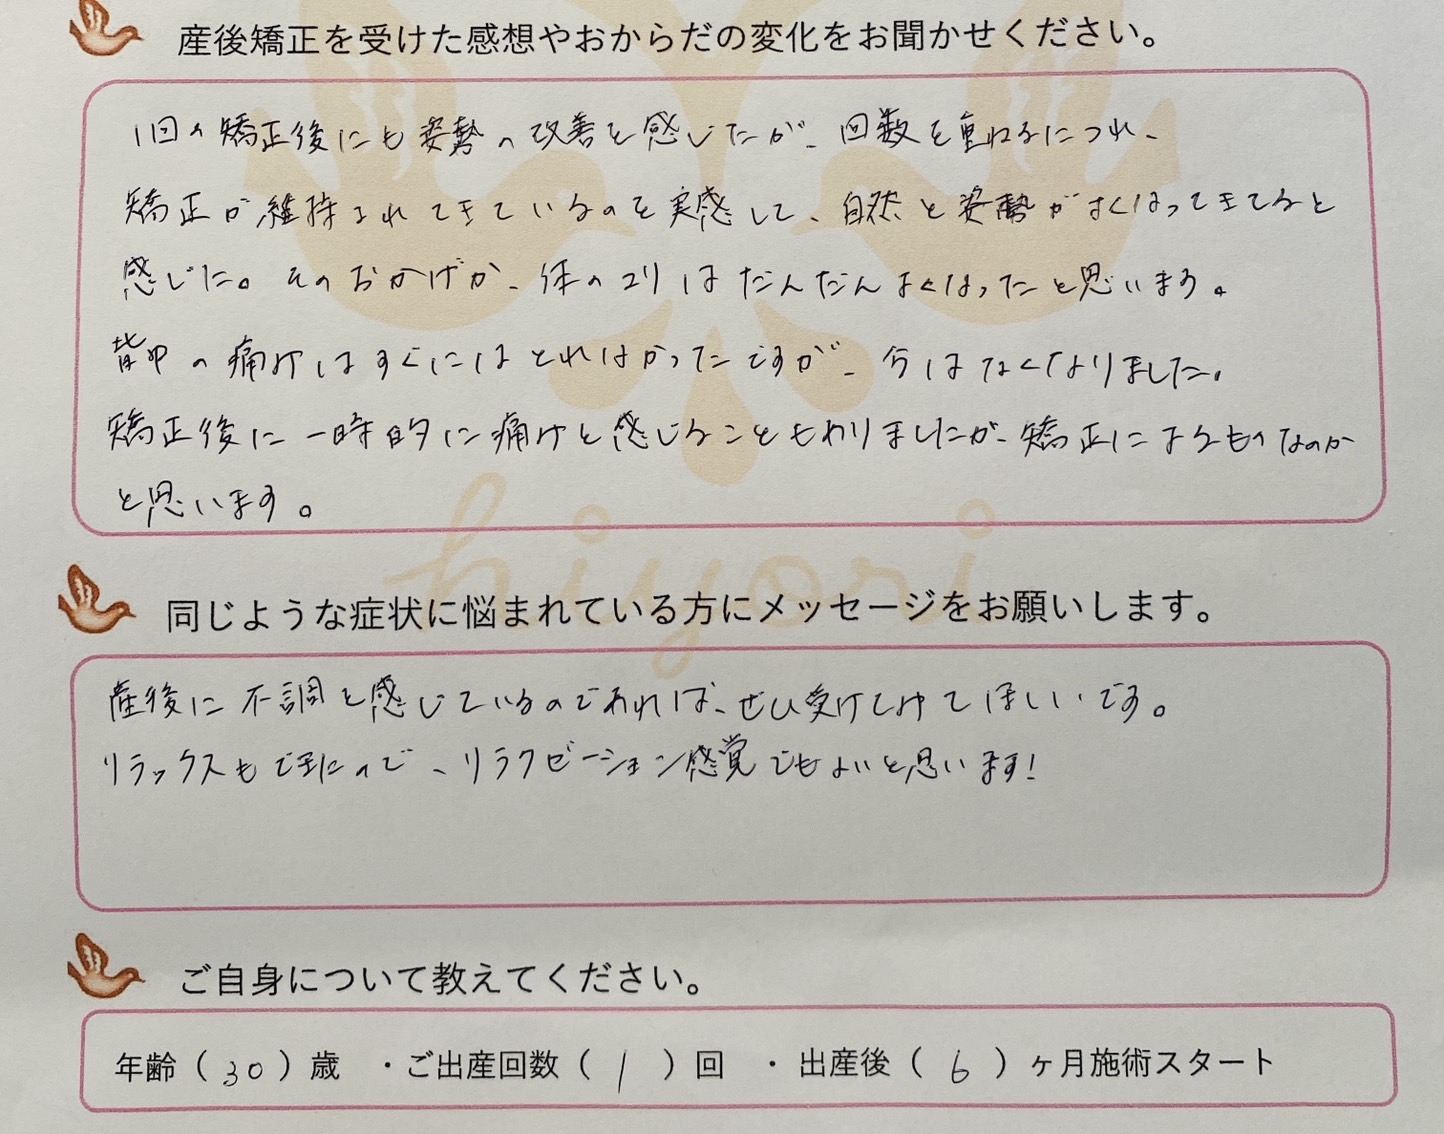 産後矯正を受けた感想やおからだの変化をお聞かせください。
1回の矯正後にも姿勢の改善を感じたが、回数を重ねるにつれ、
矯正が維持されてきているのを実感して、自然と姿勢がよくなってきてると
感じた。そのおかげか、体のコリはだんだんよくなったと思います。
背中の痛みはすぐにはとれなかったですが、今はなくなりました。
矯正後に一時的に痛みを感じることもありましたが、矯正によるものなのか
と思います。
hiyori
同じような症状に悩まれている方にメッセージをお願いします。
産後に不調を感じているのであれば、ぜひ受けてみてほしいです。
リラックスもできたので、リラクゼーション感覚でもよいと思います!
ご自身について教えてください。
年齢（30）歳 ・ご出産回数（1）回 ・出産後（6）ヶ月施術スタート